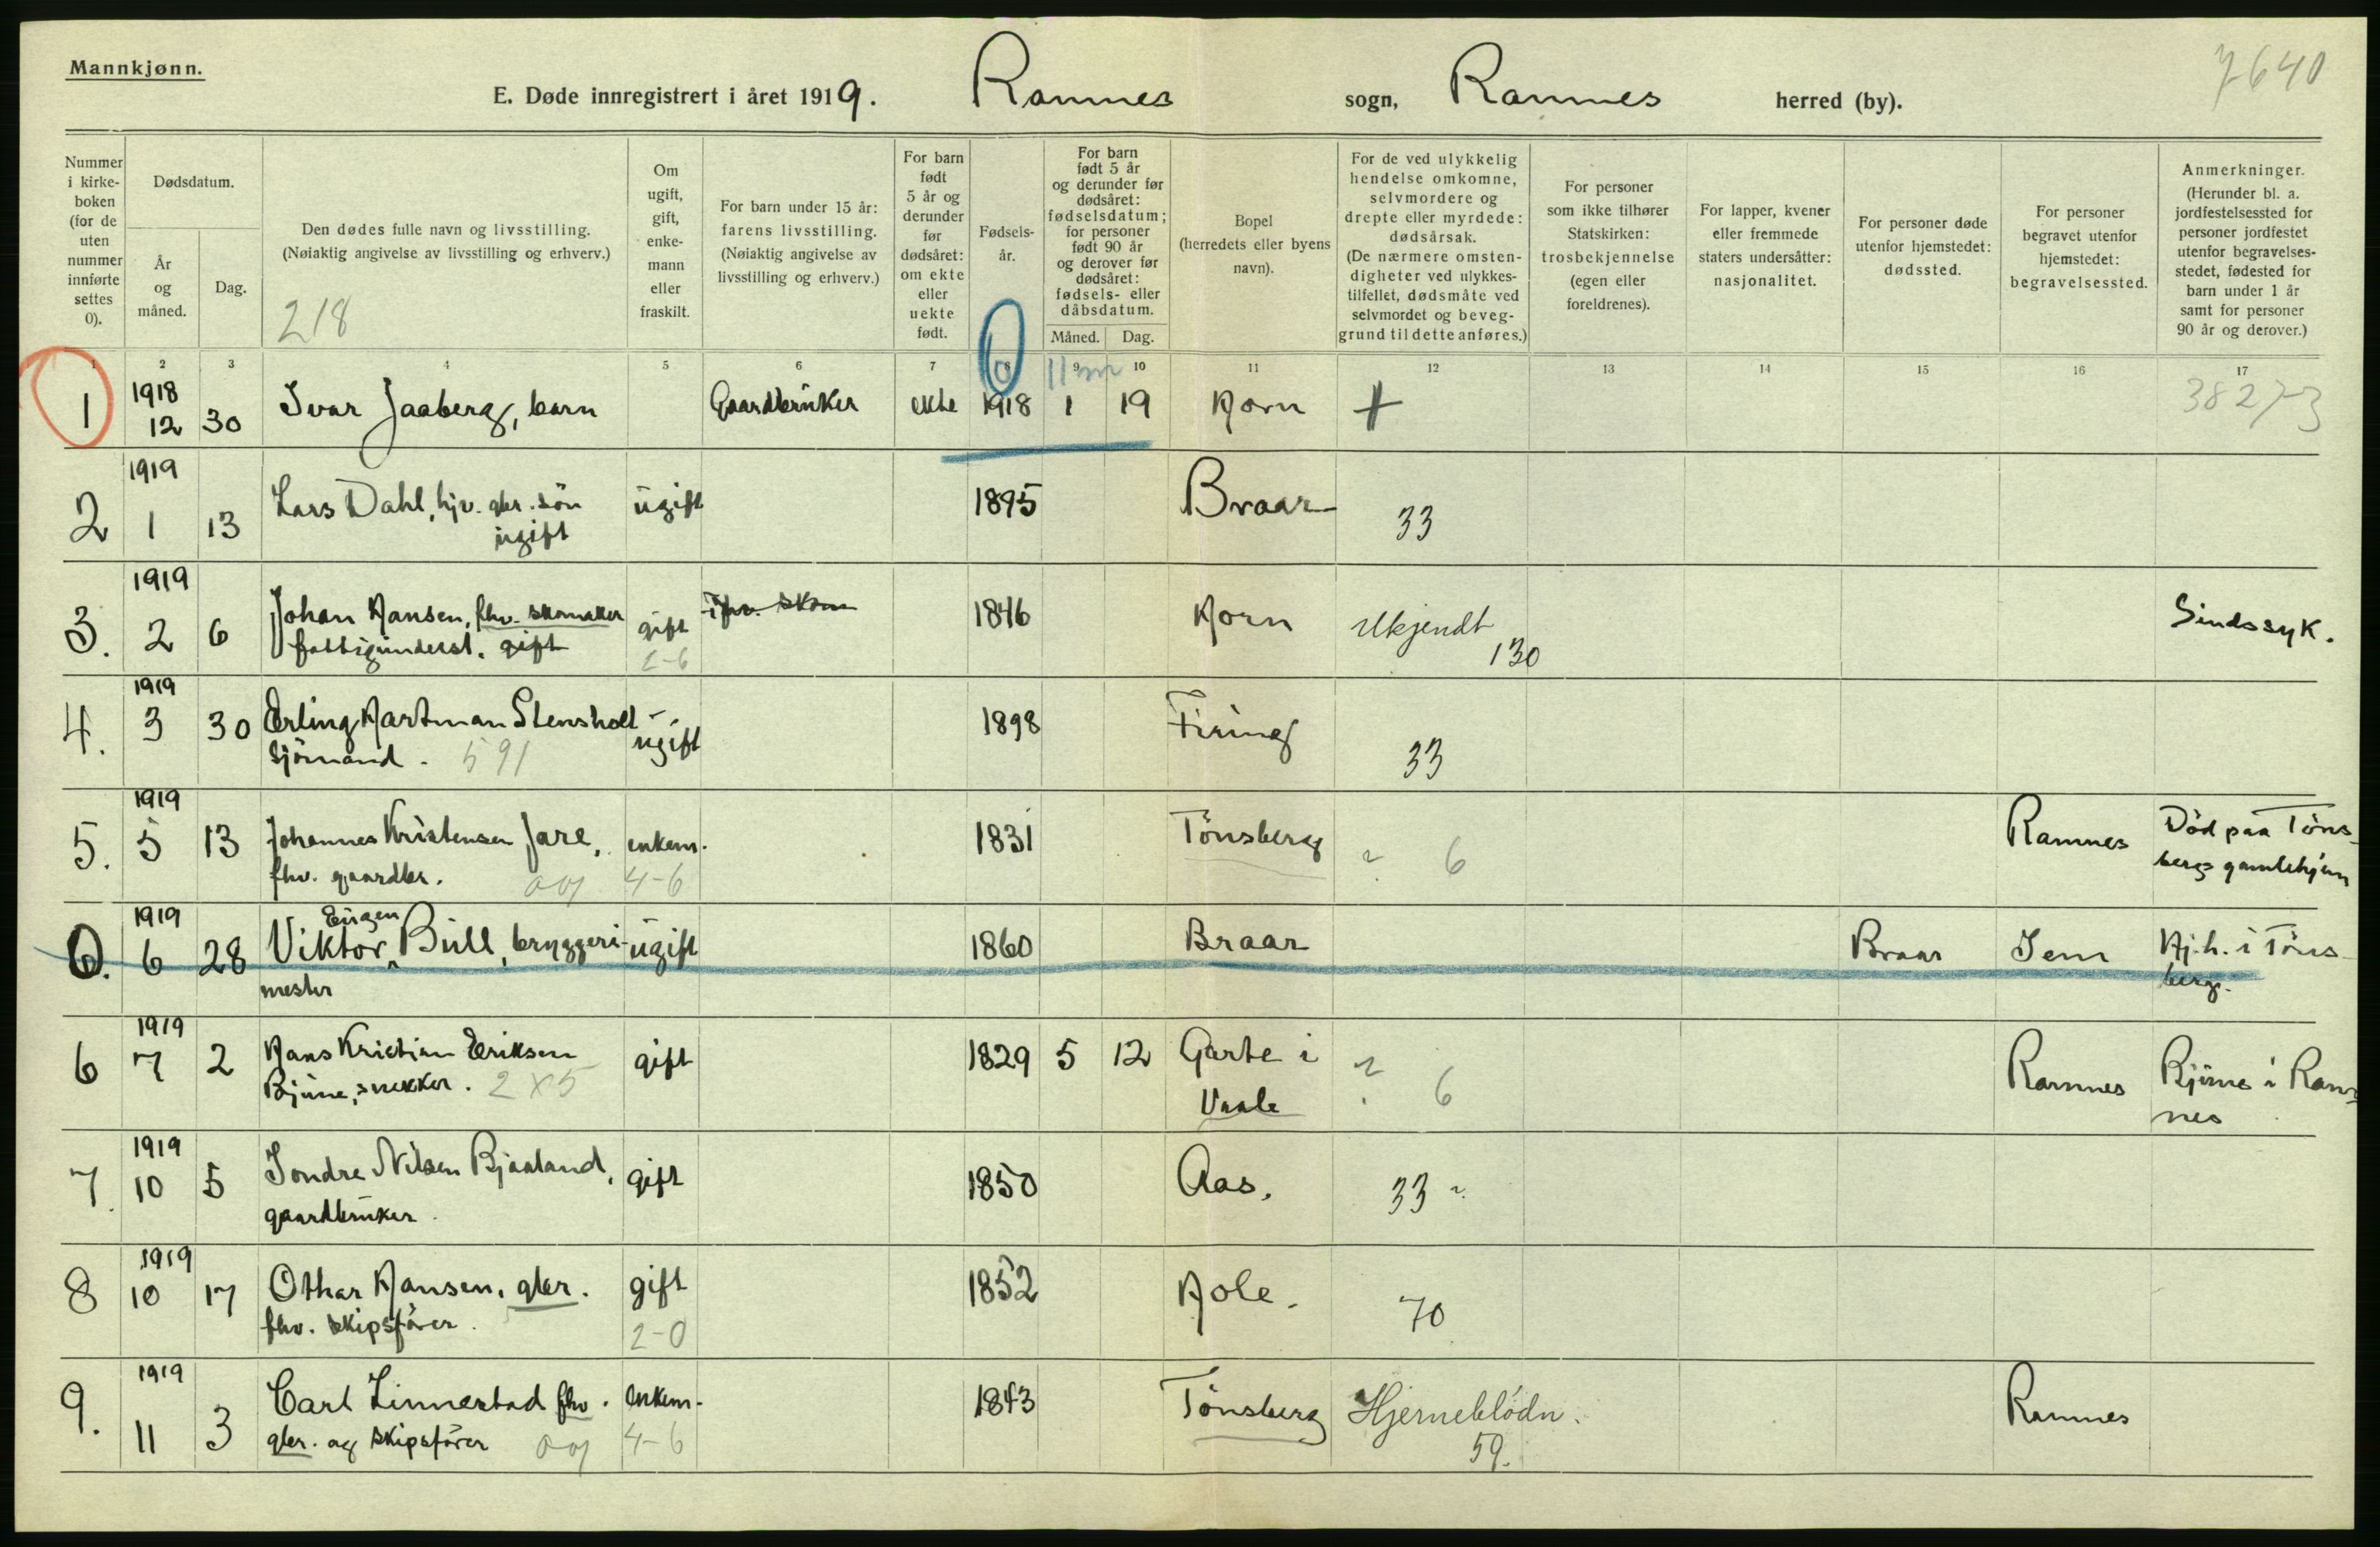 Mannkjønn.
7640
E. Døde innregistrert i året 1919. Ramnes sogn, Ramnes herred (by).
Nummer i kirke-boken (for de uten nummer innførte settes 0).
Dødsdatum.
År og måned.
Dag.
Den dødes fulle navn og livsstilling.
(Nøiaktig angivelse av livsstilling og erhverv.)
218
Om ugift, gift, enke-mann eller fraskilt.
For barn under 15 år: farens livsstilling.
(Nøiaktig angivelse av livsstilling og erhverv.)
For barn født 5 år og derunder før dødsåret: om ekte eller uekte født.
Fødsels-år.
For barn født 5 år og derunder før dødsåret: fødselsdatum; for personer født 90 år og derover før dødsåret: fødsels- eller dåbsdatum.
Måned. Dag.
Bopel (herredets eller byens navn).
For de ved ulykkelig hendelse omkomne, selvmordere og drepte eller myrdede: dødsårsak.
(De nærmere omsten-digheter ved ulykkes-tilfellet, dødsmåte ved selvmordet og beveg-grund til dette anføres.)
For personer som ikke tilhører Statskirken: trosbekjennelse (egen eller foreldrenes).
For lapper, kvener eller fremmede staters undersåtter: nasjonalitet.
For personer døde utenfor hjemstedet: dødssted.
For personer begravet utenfor hjemstedet: begravelsessted.
Anmerkninger.
(Herunder bl. a. jordfestelsessted for personer jordfestet utenfor begravelses-stedet, fødested for barn under 1 år samt for personer 90 år og derover.)
1 2 3 4 5 6 7 8 9 10 11 12 13 14 15 16 17
0 11 m
1 1918 12 30 Ivar Jaaberg, barn Gaardbruker ekte 1918 1 19 Horn + 38273
2 1919 1 13 Lars Dahl, hjv. gbr. sön ugift 1895 Braar 33
ugift
3. 1919 2 6 Johan Hansen, fhv. skomaker gift fhv. skom 1846 Horn Ukjendt Sindssyk.
fattigunderst. gift 2-6 130
4. 1919 3 30 Erling Hartman Stensholt ugift 1898 Firing 33
Sjömand. 591
5. 1919 5 13 Johannes Kristensen Jare, enkem. 1831 Tönsberg ? 6 Ramnes Död paa Töns-
fhv. gaardbr. 4-6 bergs gamlehjem
0. 1919 6 28 Viktor Eugen Bull, bryggeri- ugift 1860 Braar Braar Sem Hj.h. i Töns-
mester berg.
6 1919 7 2 Hans Kristian Eriksen gift 1829 5 12 Garte i ? 6 Ramnes Bjune i Ram-
Bjune, snekker. 2x5 Vaale nes
7. 1919 10 5 Sondre Nilsen Bjaaland, gift 1850 Aas. 33 ?
gaardbruker.
8 1919 10 17 Othar Hansen, gbr. gift 1852 Hole. 70
fhv. skipsförer. 2-0
9. 1919 11 3 Carl Linnestad fhv. enkem. 1843 Tönsberg Hjerneblödn. Ramnes
gbr. og skipsförer 4-6 59.